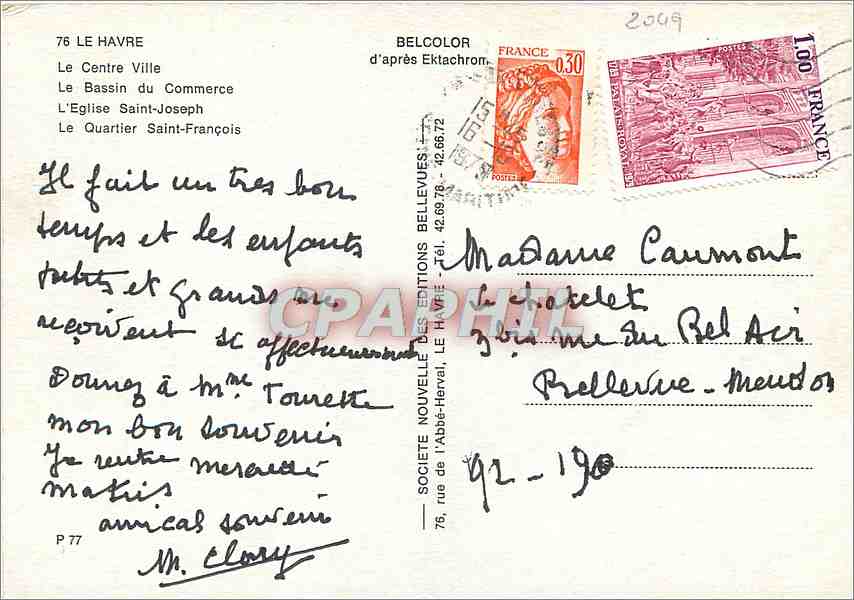 2049
76 LE HAVRE
Le Centre Ville
Le Bassin du Commerce
L'Eglise Saint-Joseph
Le Quartier Saint-François
BELCOLOR
d'après Ektachrom
FRANCE
0,30
POSTES
1,00 FRANCE
POSTES
PALAIS ROYAL
15
16 -
1979
MARITIME
Il fait un tres bon
temps et les enfants
petits et grands me
reçoivent si affectueusement
Donnez à Mme Tourette
mon bon souvenir
Je rentre mercredi
matin
amical souvenir
M. Clary
P 77
SOCIETE NOUVELLE DES EDITIONS BELLEVUES
76, rue de l'Abbé-Herval, LE HAVRE - Tél. 42.69.78 - 42.66.72
Madame Caumont
Le chatelet
3 bis rue du Bel Air
Bellevue - Meudon
92 - 190
CPAPHIL